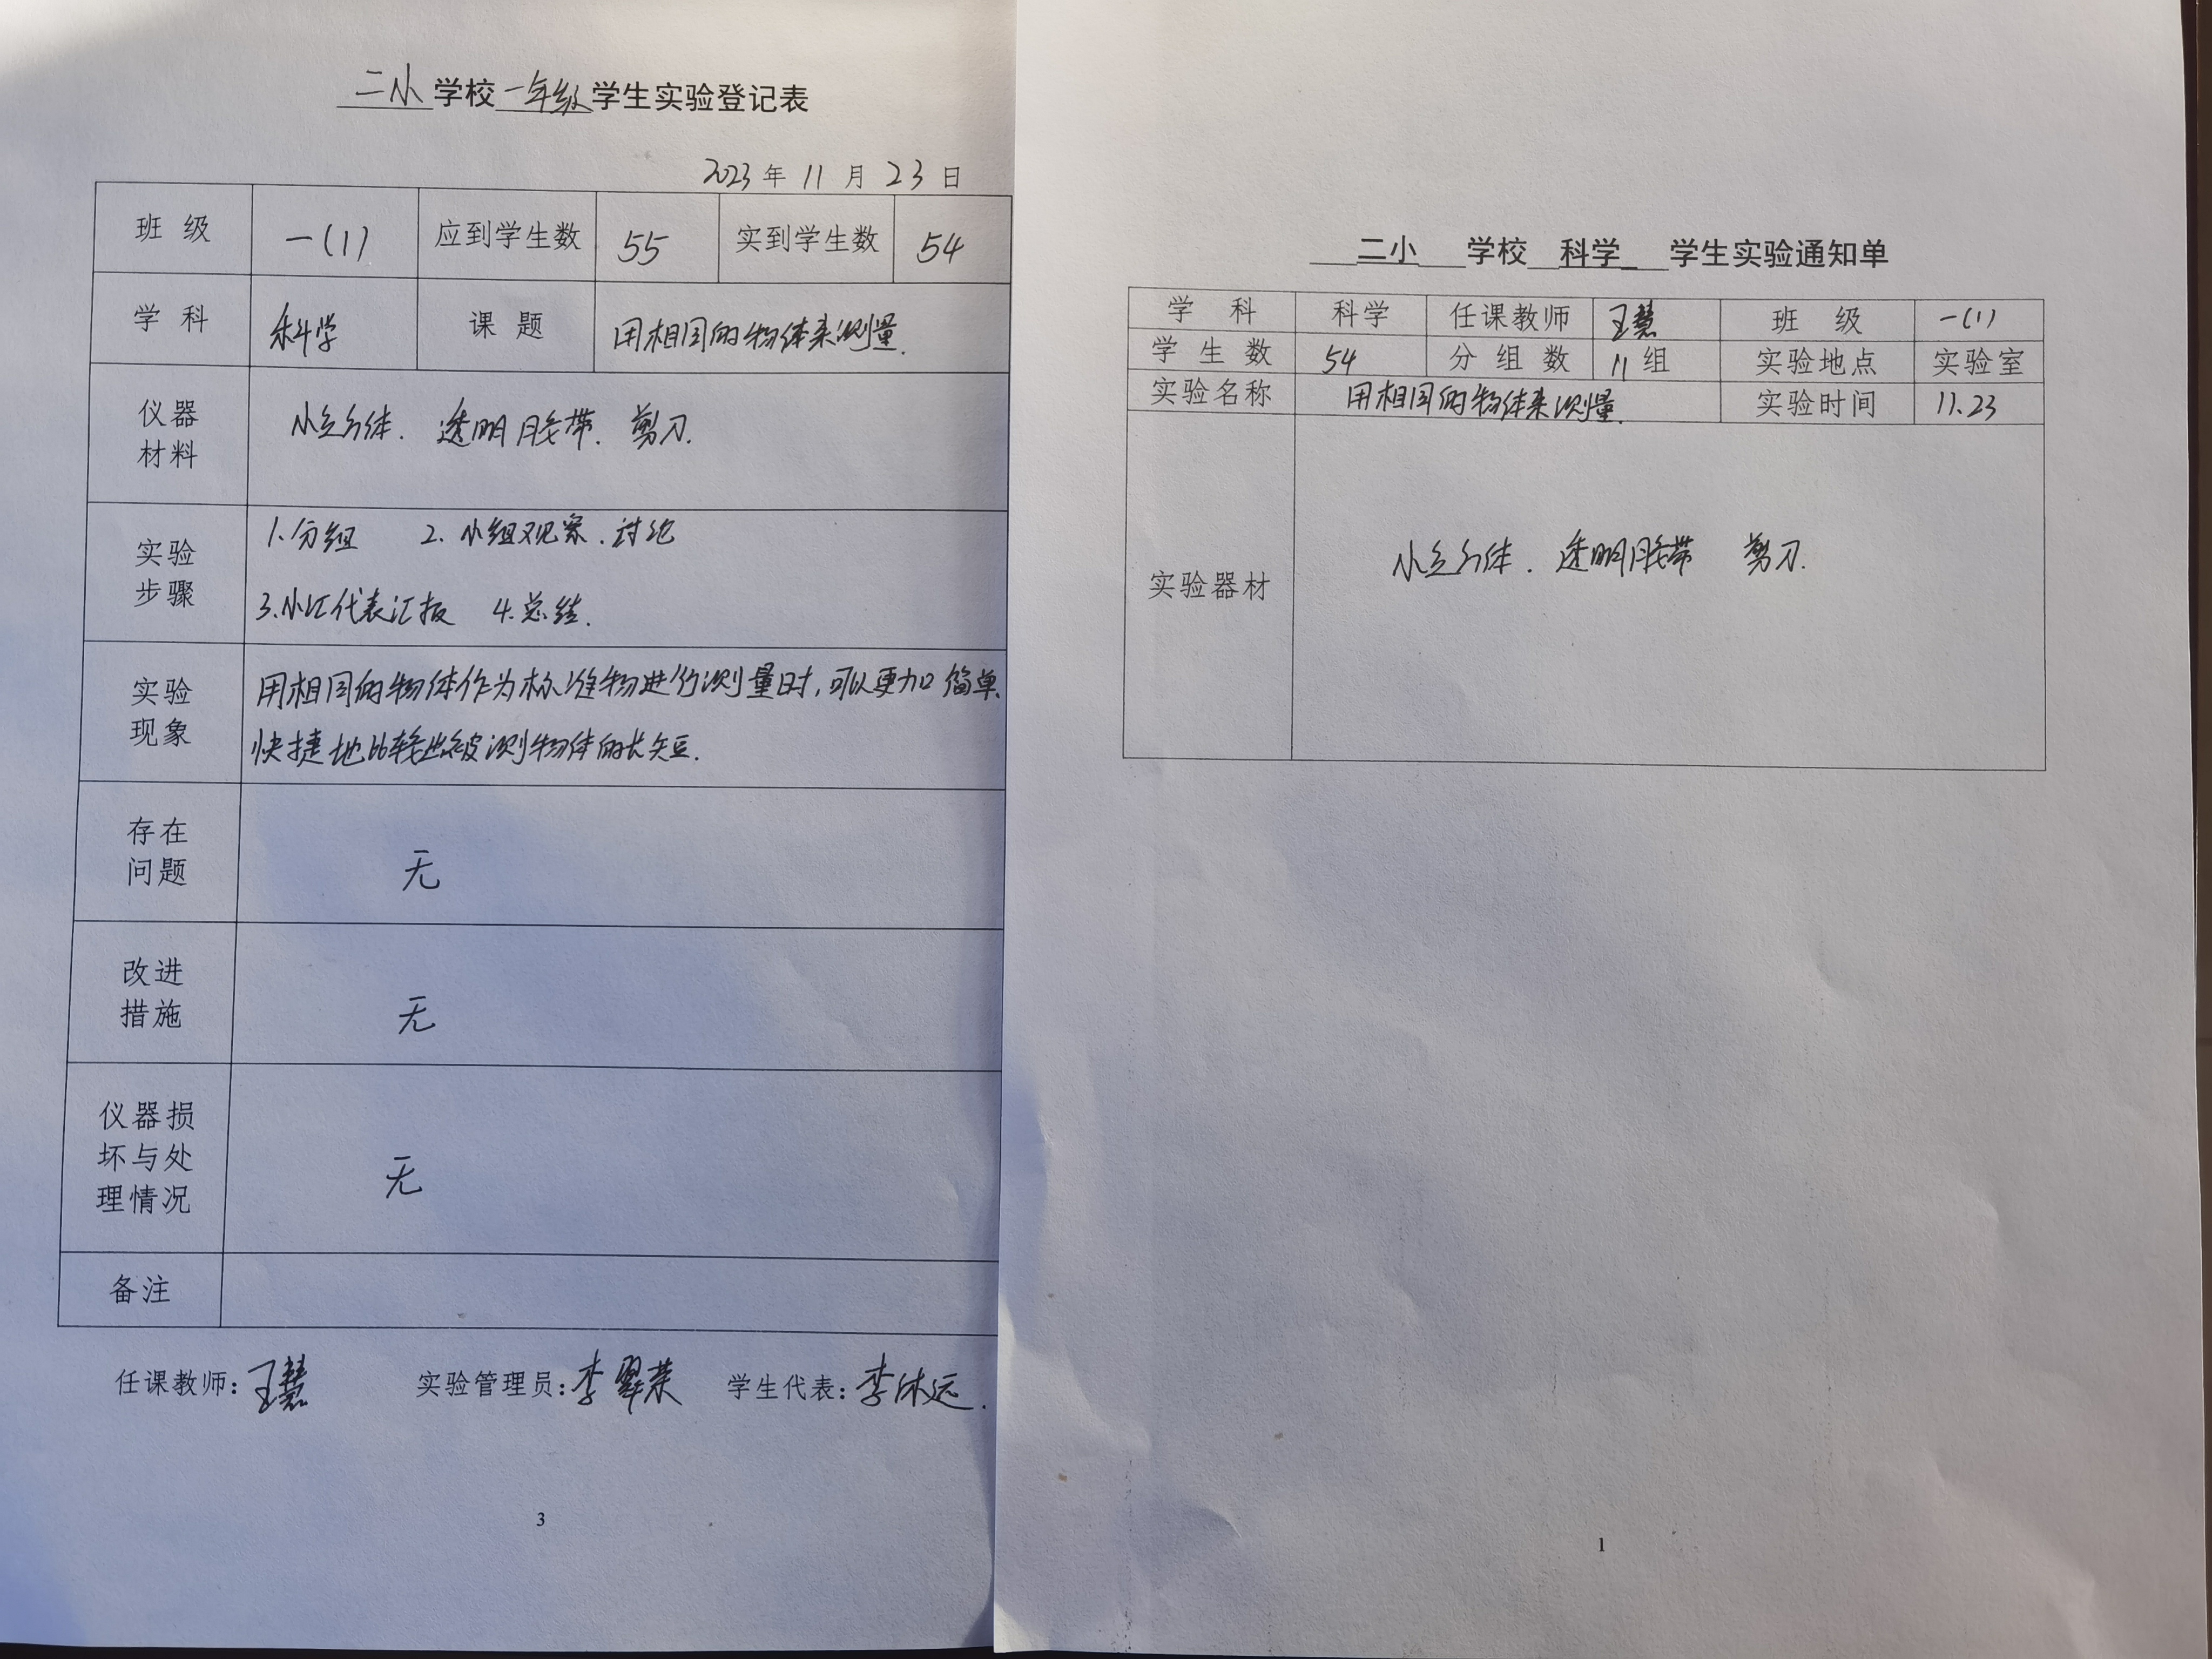 二小 学校 一年级 学生实验登记表
2023 年 11 月 23 日
班级 一(1) 应到学生数 55 实到学生数 54
学科 科学 课题 用相同的物体来测量.
仪器
材料
小立方体. 透明胶带. 剪刀.
实验
步骤
1.分组 2. 小组观察.讨论
3.小汇代表汇报 4.总结.
实验
现象
用相同的物体作为标准物进行测量时,可以更加简单、
快捷地比较出被测物体的长短.
存在
问题
无
改进
措施
无
仪器损
坏与处
理情况
无
备注
任课教师:王慧 实验管理员:李翠荣 学生代表:李沐远.
3
二小 学校 科学 学生实验通知单
学科 科学 任课教师 王慧 班级 一(1)
学生数 54 分组数 11 组 实验地点 实验室
实验名称 用相同的物体来测量. 实验时间 11.23
实验器材
小立方体. 透明胶带 剪刀.
1